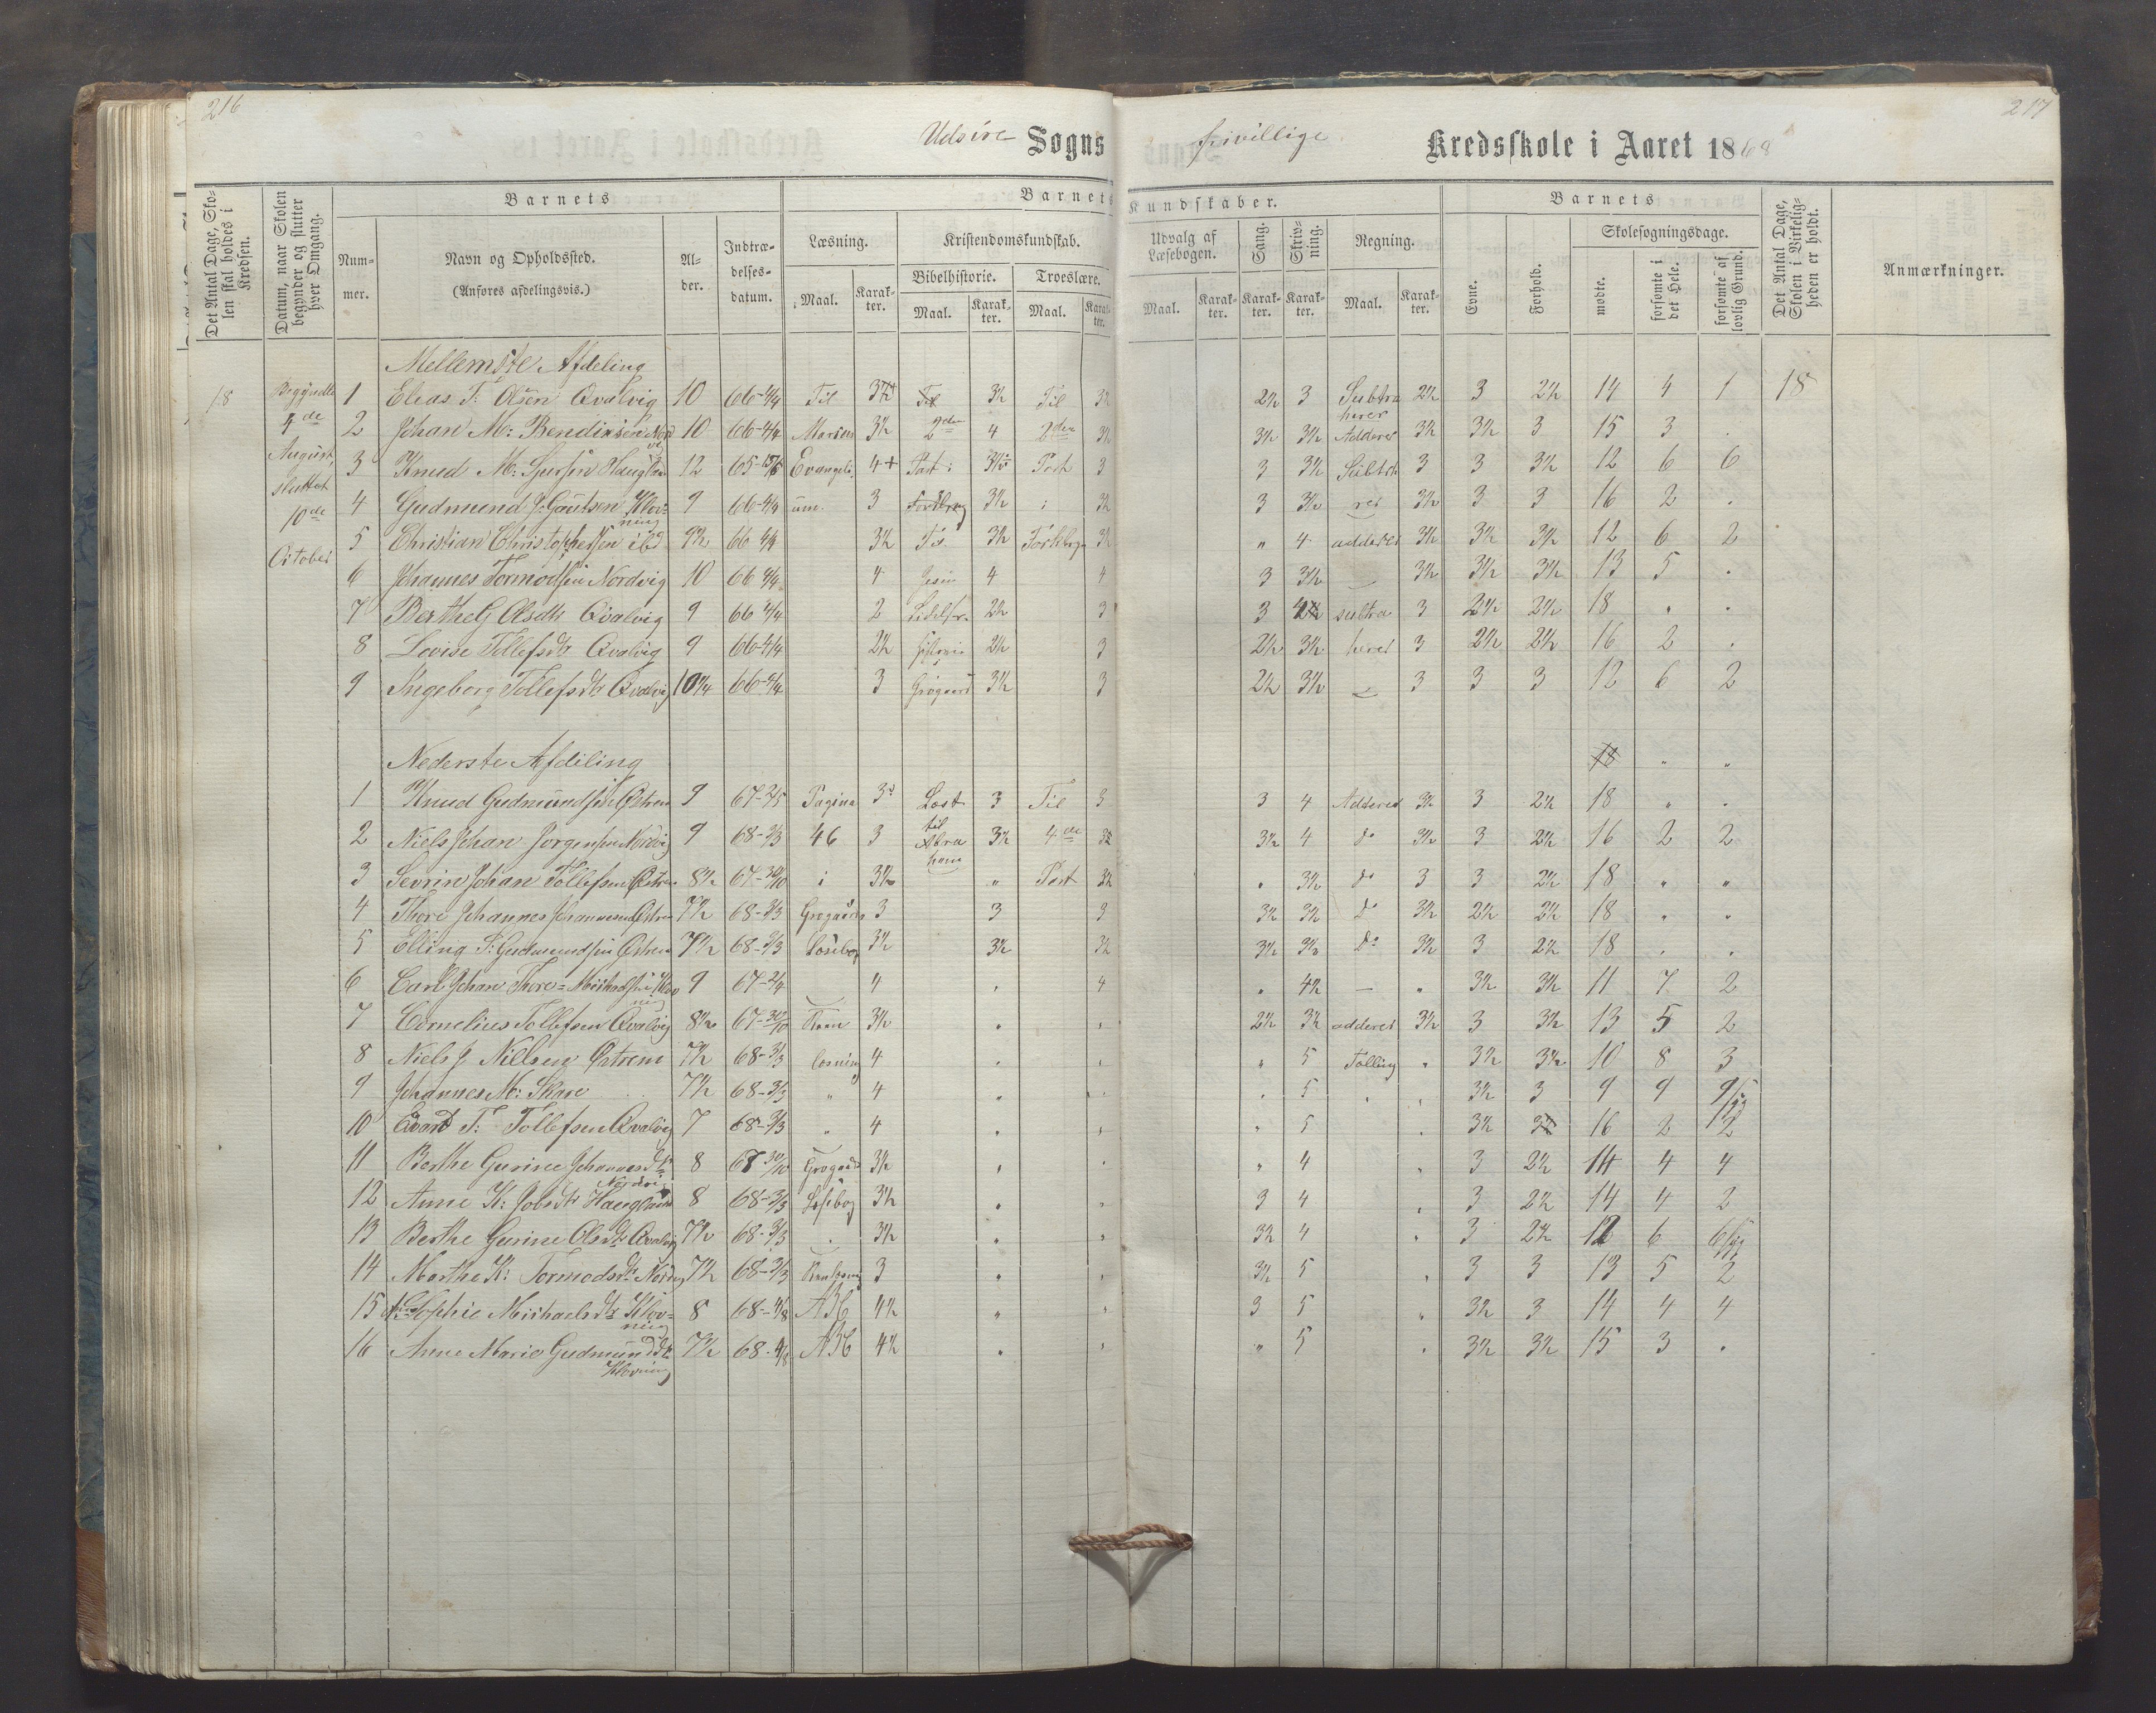 216
217
Udsire Sogns frivillige Kredsskole i Aaret 1868
Det Antal Dage, Skolen skal holdes i Kredsen.
Datum, naar Skolen begynder og slutter hver Omgang.
Barnets
Nummer.
Navn og Opholdssted.
(Anføres afdelingsvis.)
Alder.
Indtrædelsesdatum.
Barnets Kundskaber.
Læsning.
Maal.
Karakter.
Kristendomskundskab.
Bibelhistorie.
Maal.
Karakter.
Troeslære.
Maal.
Karakter.
Udvalg af Læsebogen.
Maal.
Karakter.
Sang.
Karakter.
Skrivning.
Karakter.
Regning.
Maal.
Karakter.
Barnets
Evne.
Forhold.
Skolesøgningsdage.
mødte.
forsømte i det Hele.
forsømte af lovlig Grund.
Det Antal Dage, Skolen i Virkeligheden er holdt.
Anmærkninger.
18
Begyndte 4de August, sluttet 10de October
Mellemste Afdeling
1 Elias T. Olsen Qvalvig 10 66-4/4 Til 3½ Til 3½ Til 3½ 2½ 3 Subtra 2½ 3 2½ 14 4 1 18
2 Johan M: Bendiksen Nord 10 66-4/4 Marcus 3½ 2den 4 2den 3½ 3½ 3½ Adderer 3½ 3½ 3 15 3 .
3 Knud M: Haugland 12 65-15/5 Evangeli 4+ Part: 3½ Part 3 3 3½ Subtra 3 3 3½ 12 6 6
4 Gudmund J. Gautsen Klovning 9 66-4/4 um. 3 3½ : 3½ 3 3½ rer 3½ 3 3 16 2 .
5 Christian Christophersen ibd 9½ 66 4/4 3½ 3½ 3½ " 4 adderer 3½ 3½ 3½ 12 6 2
6 Johannes Tormodsen Nordvig 10 66 4/4 4 4 4 3 3½ 3½ 3½ 3½ 13 5 .
7 Berthe G Olsdtr Qvalvig 9 66 4/4 2 2½ 3 3 subtra 3 2½ 2½ 18 . .
8 Lovise Tollefsdtr Qvalvig 9 66-4/4 2½ historie 2½ 3 2½ 3½ herer 3 2½ 2½ 16 2 .
9 Ingeborg Tollefsdtr Qvalvig 10¼ 66-4/4 3 Grøgaard 3½ 3 2½ 3½ 3 3 3 12 6 2
Nederste Afdeling 18 " "
1 Knud Gudmundsen Østrem 9 67-2/5 Pagina 3 Læst 3 Til 3 3 4 Adderer 3½ 3 2½ 18 " .
2 Niels Johan Jørgensen Nordvig 9 68-3/3 46 3 til Abraham 3½ 4de 3½ 3½ 4 do 3½ 3 2½ 16 2 2
3 Sevrin Johan Tollefsen Østrem 8½ 67-30/10 i 3½ " Part 3½ . 3½ do 3 3 2½ 18 " "
4 Thore Johannes Johannesen Østrem 7½ 68-3/3 Grøgaards 3 3 3 3½ 3½ do 3½ 2½ 2½ 18 " "
5 Elling T: Gudmundsen Østrem 7½ 68-3/3 Læsebog 3½ 3½ 3½ 3½ 3½ do 3½ 3 2½ 18 . .
6 Carl Johan Thore Michaelsen Klovning 9 67-2/4 4 . 4 . 4½ — " 3½ 3½ 11 7 2
7 Cornelius Tollefsen Qvalvig 8½ 67-30/10 3½ . . 2½ 3½ adderer 3½ 3 3½ 13 5 2
8 Niels J Nilsen Østrem 7½ 68-3/3 4 . . " 5 Tælling . 3½ 3½ 10 8 3
9 Johannes M: Skare 7½ 68-3/3 " 4 . . . 5 . . 3½ 3 9 9
10 T: Tollefsen Qvalvig 7 68-3/3 " 4 . . " 5 . 3½ 16 2 2
11 Berthe Gurine Johannesdtr Nordvig 8 67 30/10 Grøgaards 3½ . . " 4 " 3 2½ 14 4 4
12 Anne K: Jobsdtr Haugland 8 68-3/3 Læsebog 3½ . . 3 4 . 3 2½ 14 4 2
13 Berthe Gurine Olsdtr Qvalvig 7½ 68-3/3 . 3½ . . 3½ 4 . 3 2½ 12 6 6
14 Marthe K: Tormodsdtr Nordvig 7½ 68-3/3 3 . . 3½ 5 . 3 3 13 5 2
15 Sophie Michaelsdtr Klovning 8 68-4/8 ABC 4½ " . 3 5 " 3½ 3 14 4 4
16 Anne Marie Gudmundsdtr Klovning 7½ 68-4/8 ABC 4½ . . " 5 . 3½ 3½ 15 3 .